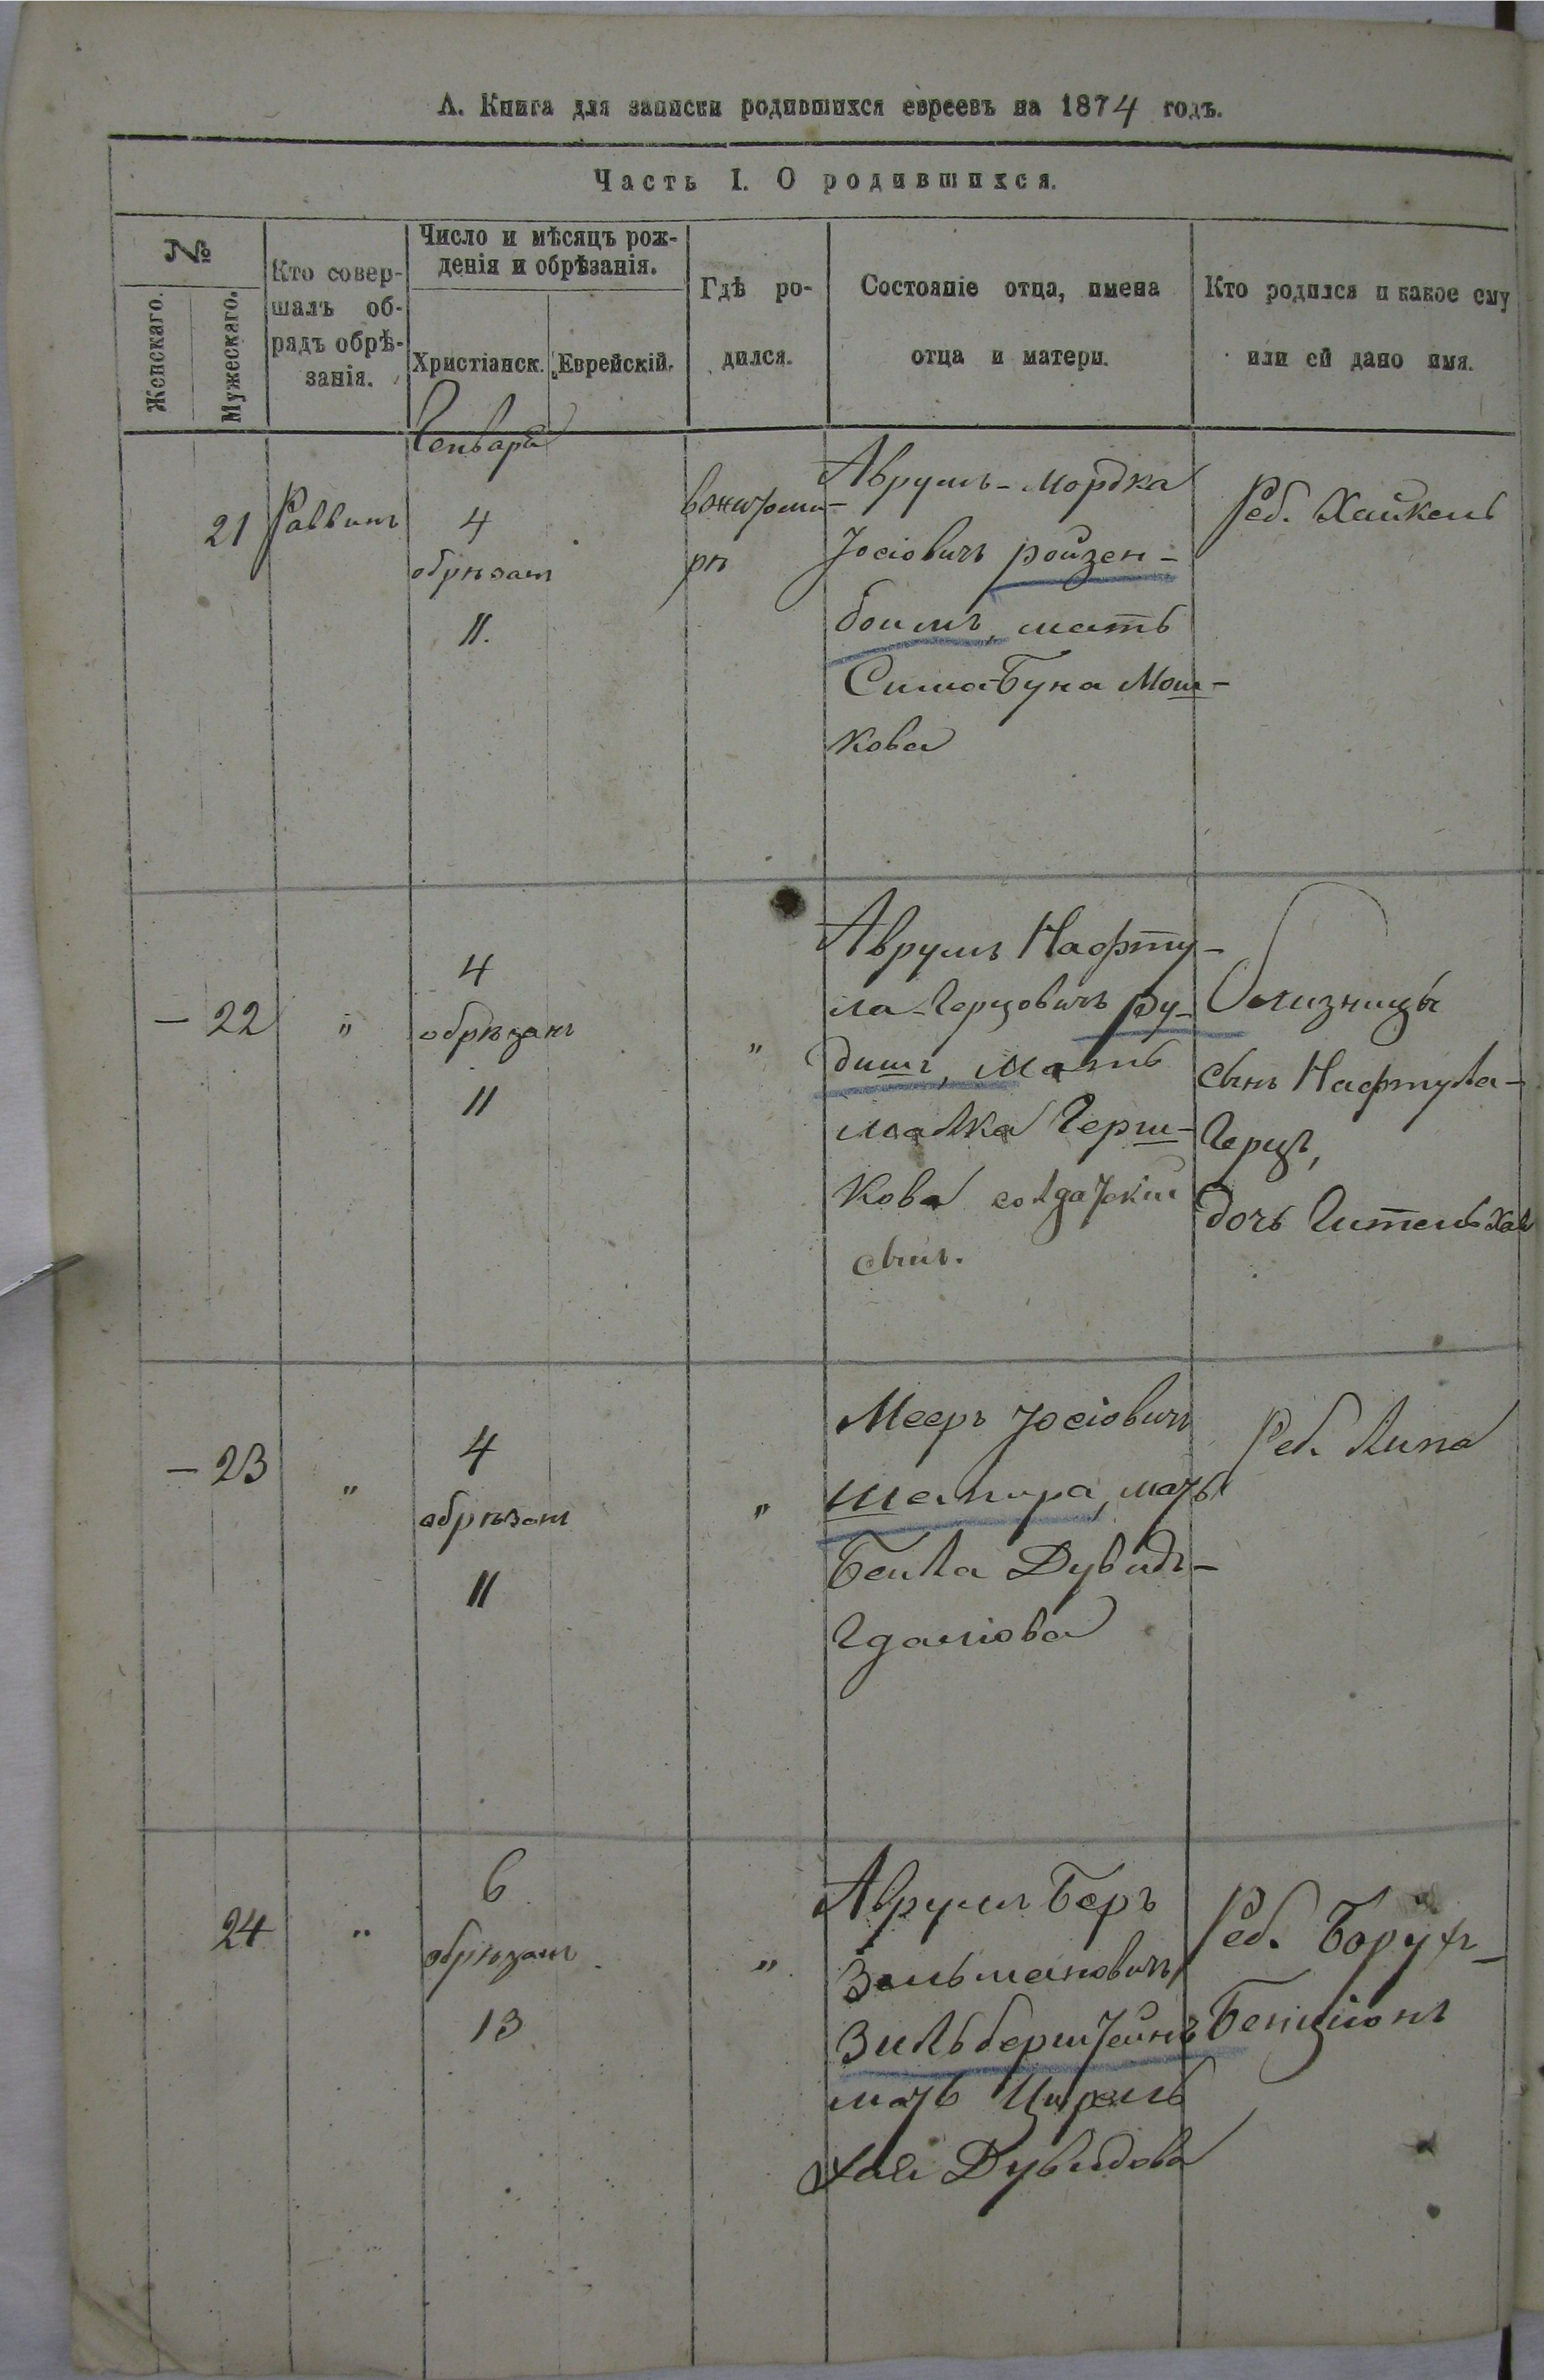 А. Книга для записки родившихся евреевъ на 1874 годъ.
Часть I. О родившихся.
№
Женскаго.
Мужескаго.
Кто совер-
шалъ об-
рядъ обрѣ-
занія.
Число и мѣсяцъ рож-
денія и обрѣзанія.
Христіанск.
Еврейскій.
Гдѣ ро-
дился.
Состояніе отца, имена
отца и матери.
Кто родился и какое ему
или ей дано имя.
Генваря
21
Раввинъ
4
обрѣзанъ
11.
вжитоми-
рѣ
Аврумъ-Мордка
Іосіовичъ ройзен-
боимъ, мать
Сима-Буна Мош-
кова
Реб. Хайкель
- 22
"
4
обрѣзанъ
11
"
Аврумъ Нафту-
ла-Герцовичъ ру-
дишъ, мать
малка Герш-
кова солдаткій
сынъ.
близницы
сынъ Нафтула-
Герцъ,
дочь Гитель Хая
- 23
"
4
обрѣзанъ
11
"
Мееръ Іосіовичъ
Шапира, мать
Бейла Дувидъ-
Гдаліова
Реб. Липа
24
"
6
обрѣзанъ
13
"
Аврумъ Беръ
Зельмановичъ
Зильберштейнъ
мать Цирель
Хая Дувидова
Реб. Борухъ-
Бенціонъ